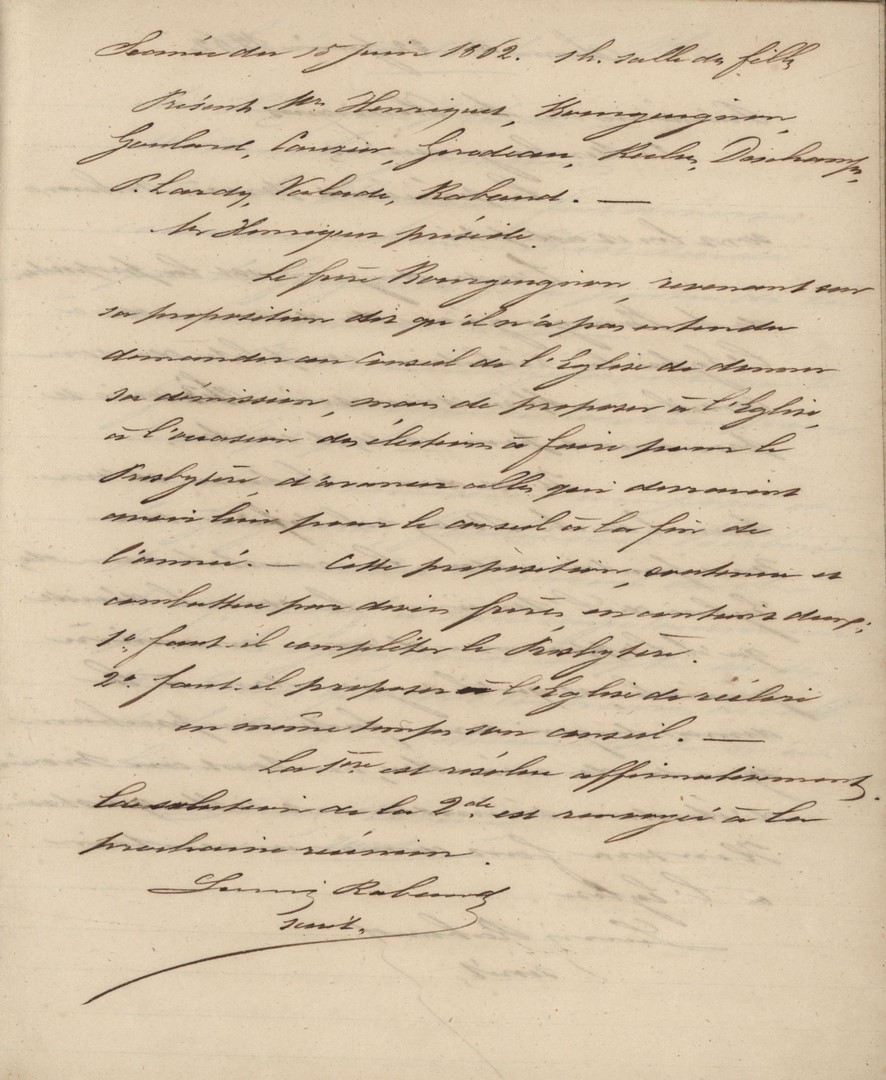 Séance du 15 juin 1862. 1h. salle des filles
Présents Mrs Henriquet, Bourguignon,
Goulard, Cousin, Girodeau, Deschamps,
P. Lardy, Valade, Rabaud. —
Mr Henriquet préside.
Le frère Bourguignon, revenant sur
sa proposition dit qu'il n'a pas entendu
demander au Conseil de l'Eglise de donner
sa démission, mais de proposer à l'Eglise,
à l'occasion des élections à faire pour le
Presbytère, d'avancer celles qui devraient
avoir lieu pour le conseil à la fin de
l'année. — Cette proposition, soutenue et
combattue par divers frères, en contient deux:
1o. faut-il compléter le Presbytère.
2o. faut-il proposer à l'Eglise de réélire
en même temps son conseil. —
La 1ère est résolue affirmativement.
La solution de la 2de. est renvoyée à la
prochaine réunion.
Rabaud
secrét.